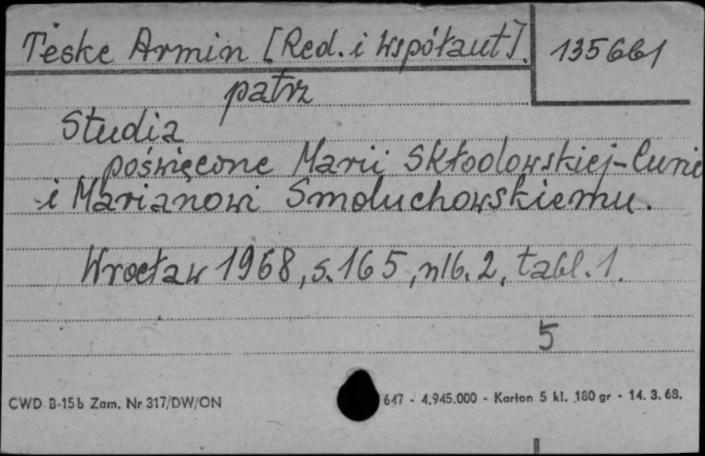 Teske Armin [Red. i współaut]. 135661
patrz
Studia
poświęcone Marii Skłodowskiej-Curie
i Marianowi Smoluchowskiemu.
Wrocław 1968, s. 165, nlb. 2, tabl. 1.
5
CWD B-15b Zam. Nr 317/DW/ON 647 - 4.945.000 - Karton 5 kl. 180 gr - 14. 3. 68.